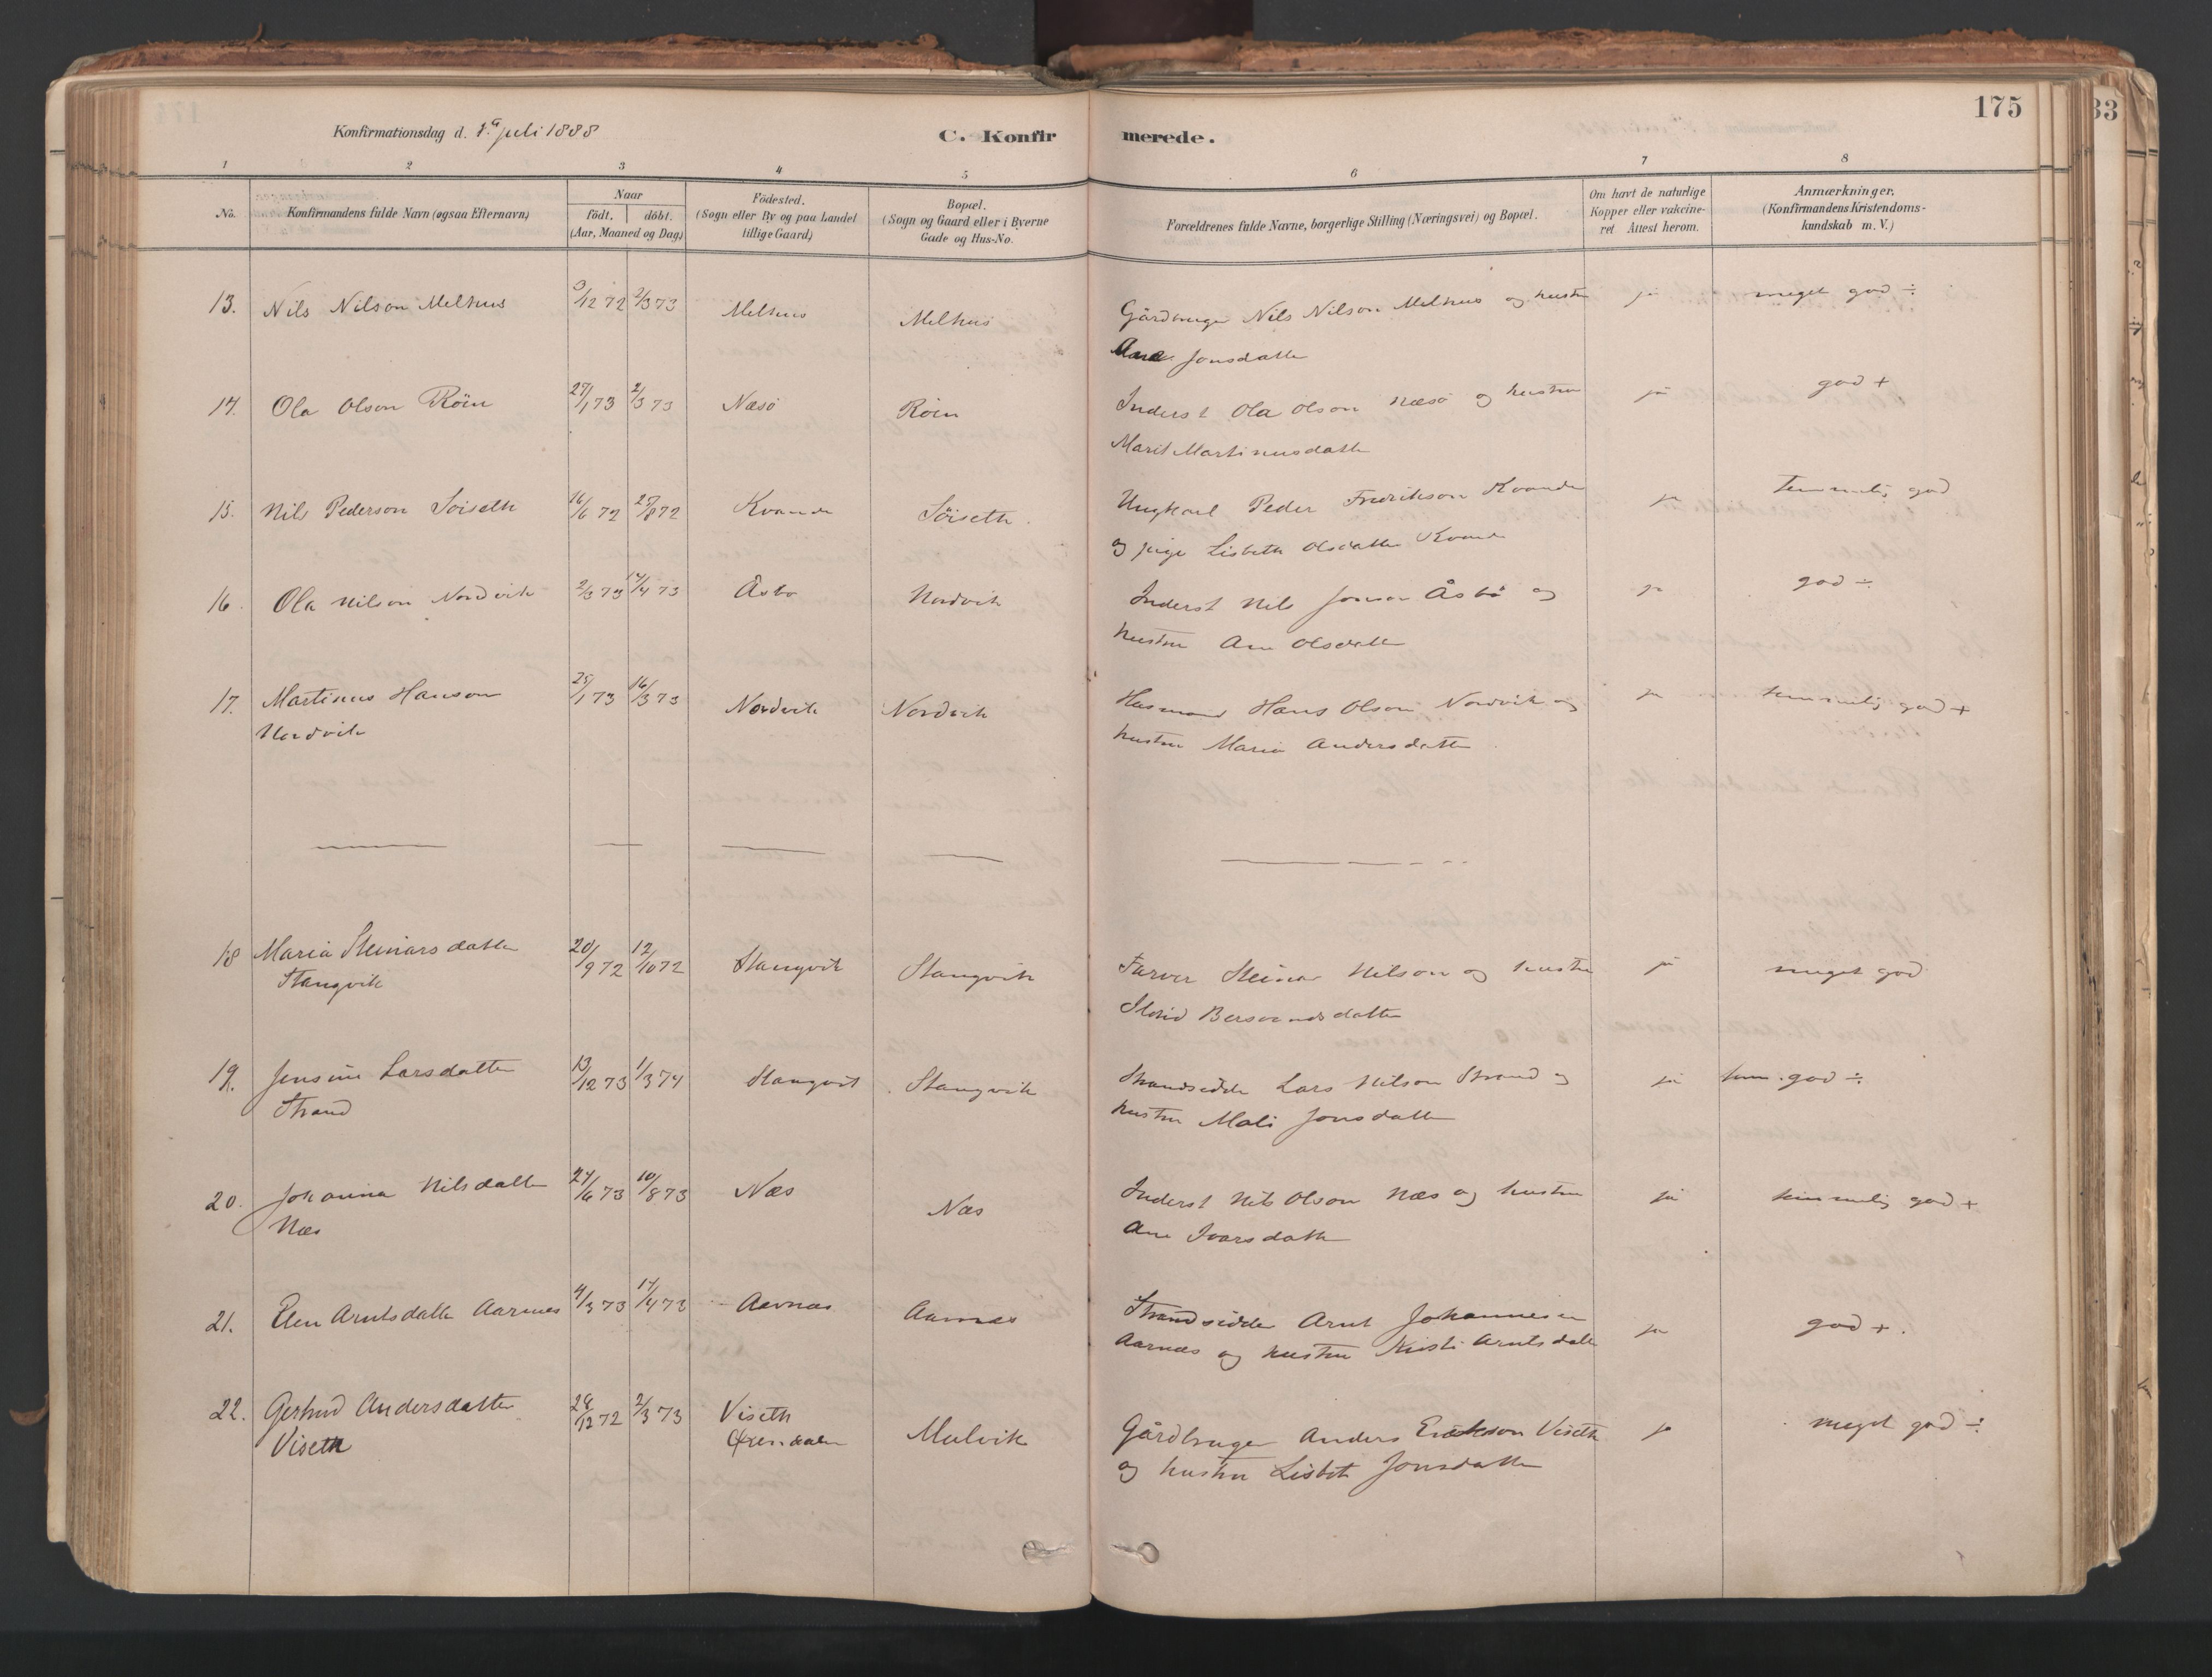 175
33
Konfirmationsdag d. 1ª juli 1888
C. Konfirmerede.
1 2 3 4 5 6 7 8
No.
Konfirmandens fulde Navn (ogsaa Efternavn)
Naar
födt. döbt.
(Aar, Maaned og Dag)
Födested.
(Sogn eller By og paa Landet
tillige Gaard)
Bopæl.
(Sogn og Gaard eller i Byerne
Gade og Hus-No.
Forældrenes fulde Navne, borgerlige Stilling (Næringsvei) og Bopæl.
Om havt de naturlige
Kopper eller vakcine-
ret Attest herom.
Anmærkninger.
(Konfirmandens Kristendoms-
kundskab m. V.)
13. Nils Nilson Melhus 3/12 72 2/3 73 Melhus Melhus Gårdbruger Nils Nilson Melhus og hustru ja meget god ÷
Ane Jonsdatter
14. Ola Olson Röen 27/1 73 2/3 73 Næsö Röen Inderst Ola Olson Næsö og hustru ja god +
Marit Martinusdatter
15. Nils Pederson Söiseth 16/6 72 25/8 72 Kvande Söiseth. Ungkarl Peder Fredrikson Kvande ja temmelig god
og pige Lisbeth Olsdatter Kvande
16. Ola Nilson Nordvik 2/3 73 14/4 73 Åsbö Nordvik Inderst Nils Jonson Åsbö og ja god ÷
hustru Ane Olsdatter
17. Martinus Hanson 25/1 73 16/3 73 Nordvik Nordvik Husmand Hans Olson Nordvik og ja temmelig god +
Nordvik hustru Maria Andersdatter
18 Maria Steinarsdatter 20/9 72 12/10 72 Stangvik Stangvik Farver Steinar Nilson og hustru ja meget god
Stangvik Bersvendsdatter
19. Jensine Larsdatter 13/12 73 1/3 74 Stangvik Stangvik Strandsidder Lars Nilson Strand og ja tem. god ÷
Strand hustru Mali Jonsdatter
20. Johanna Nilsdatter 24/6 73 10/8 73 Næs Næs Inderst Nils Olson Næs og hustru ja temmelig god +
Næs Ane Ivarsdatter
21. Elen Arntsdatter Aarnes 4/3 73 14/4 73 Aarnæs Aarnæs Strandsidder Arnt Johannesen ja god +.
Aarnæs og hustru Kirsti Arntsdatter
22. Gertrud Andersdatter 28/12 72 2/3 73 Viseth Mulvik Gårdbruger Anders Erikson Viseth ja meget god ÷
Viseth Öxendalen og hustru Lisbet Jonsdatter